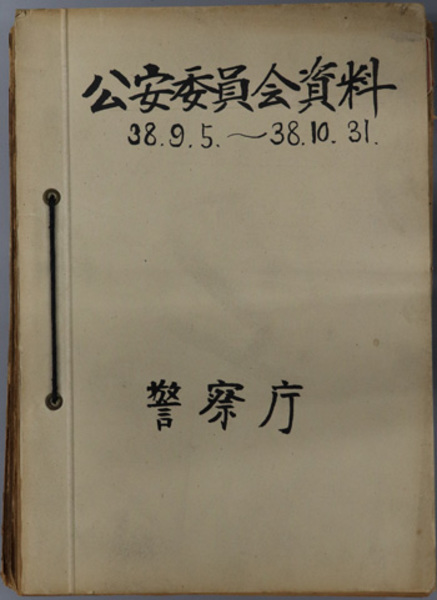 公安委員会資料
38.9.5.〜38.10.31.
警察庁